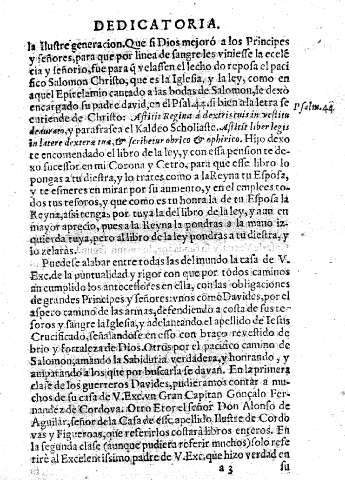 DEDICATORIA.
la Ilustre generacion. Que si Dios mejorò a los Principes
y señores, para que por linea de sangre les viniesse la excelẽ
cia y señorio, fue para q̃ velassen el lecho do reposa el paci
fico Salomon Christo, que es la Iglesia, y la ley, como en
aquel Epitelamio cantado a las bodas de Salomon, le dexò
encargado su padre david, en el Psal. 44. si bien a la letra se
entiende de Christo: Astitit Regina à dextris tuis in vestitu
Psalm. 44.
deaurato, y parafrasea el Kaldeo Scholiaste. Astitit liber legis
in latere dextera tua, & scribetur obrico & ophirico. Hijo dexo
te encomendado el libro de la ley, y con essa pension te de-
xo sucessor en mi Corona y Cetro, para que esse libro lo
pongas a tu diestra, y lo trates como a la Reyna tu Esposa,
y te esmeres en mirar por su aumento, y en el emplees to-
dos tus tesoros, y que como es tu honra la de tu Esposa la
Reyna, assi tenga por tuya la del libro de la ley, y aun en
mayor aprecio, pues a la Reyna la pondras a la mano iz-
quierda tuya, pero al libro de la ley pondras a tu diestra, y
lo zelaràs.
Puedese alabar entre todas las del mundo la casa de V.
Exc. de la puntualidad y rigor con que por todos caminos
an cumplido los antecessores en ella, con las obligaciones
de grandes Principes y señores: vnos como Davides, por el
aspero camino de las armas, defendiendo a costa de sus te-
soros y sangre la Iglesia, y adelantando el apellido de Iesus
Crucificado, señalandose en esso con braço revestido de
brio y fortaleza de Dios. Otros por el pacifico camino de
Salomon, amando la Sabiduria verdadera, y honrando, y
amparando a los que por buscarla se davan. En la primera
clase de los guerreros Davides, pudieramos contar a mu-
chos de su casa de V. Exc. vn Gran Capitan Gonçalo Fer-
nandez de Cordova. Otro Etor el señor Don Alonso de
Aguilar, señor de la Casa de esse apellido, Ilustre de Cordo
vas y Figueroas, que referirlos costarà libros enteros. En
la segunda clase (aunque pudiera referir muchos) solo refe
rirè al Excelentissimo padre de V. Exc. que hizo verdad en
a 3 su